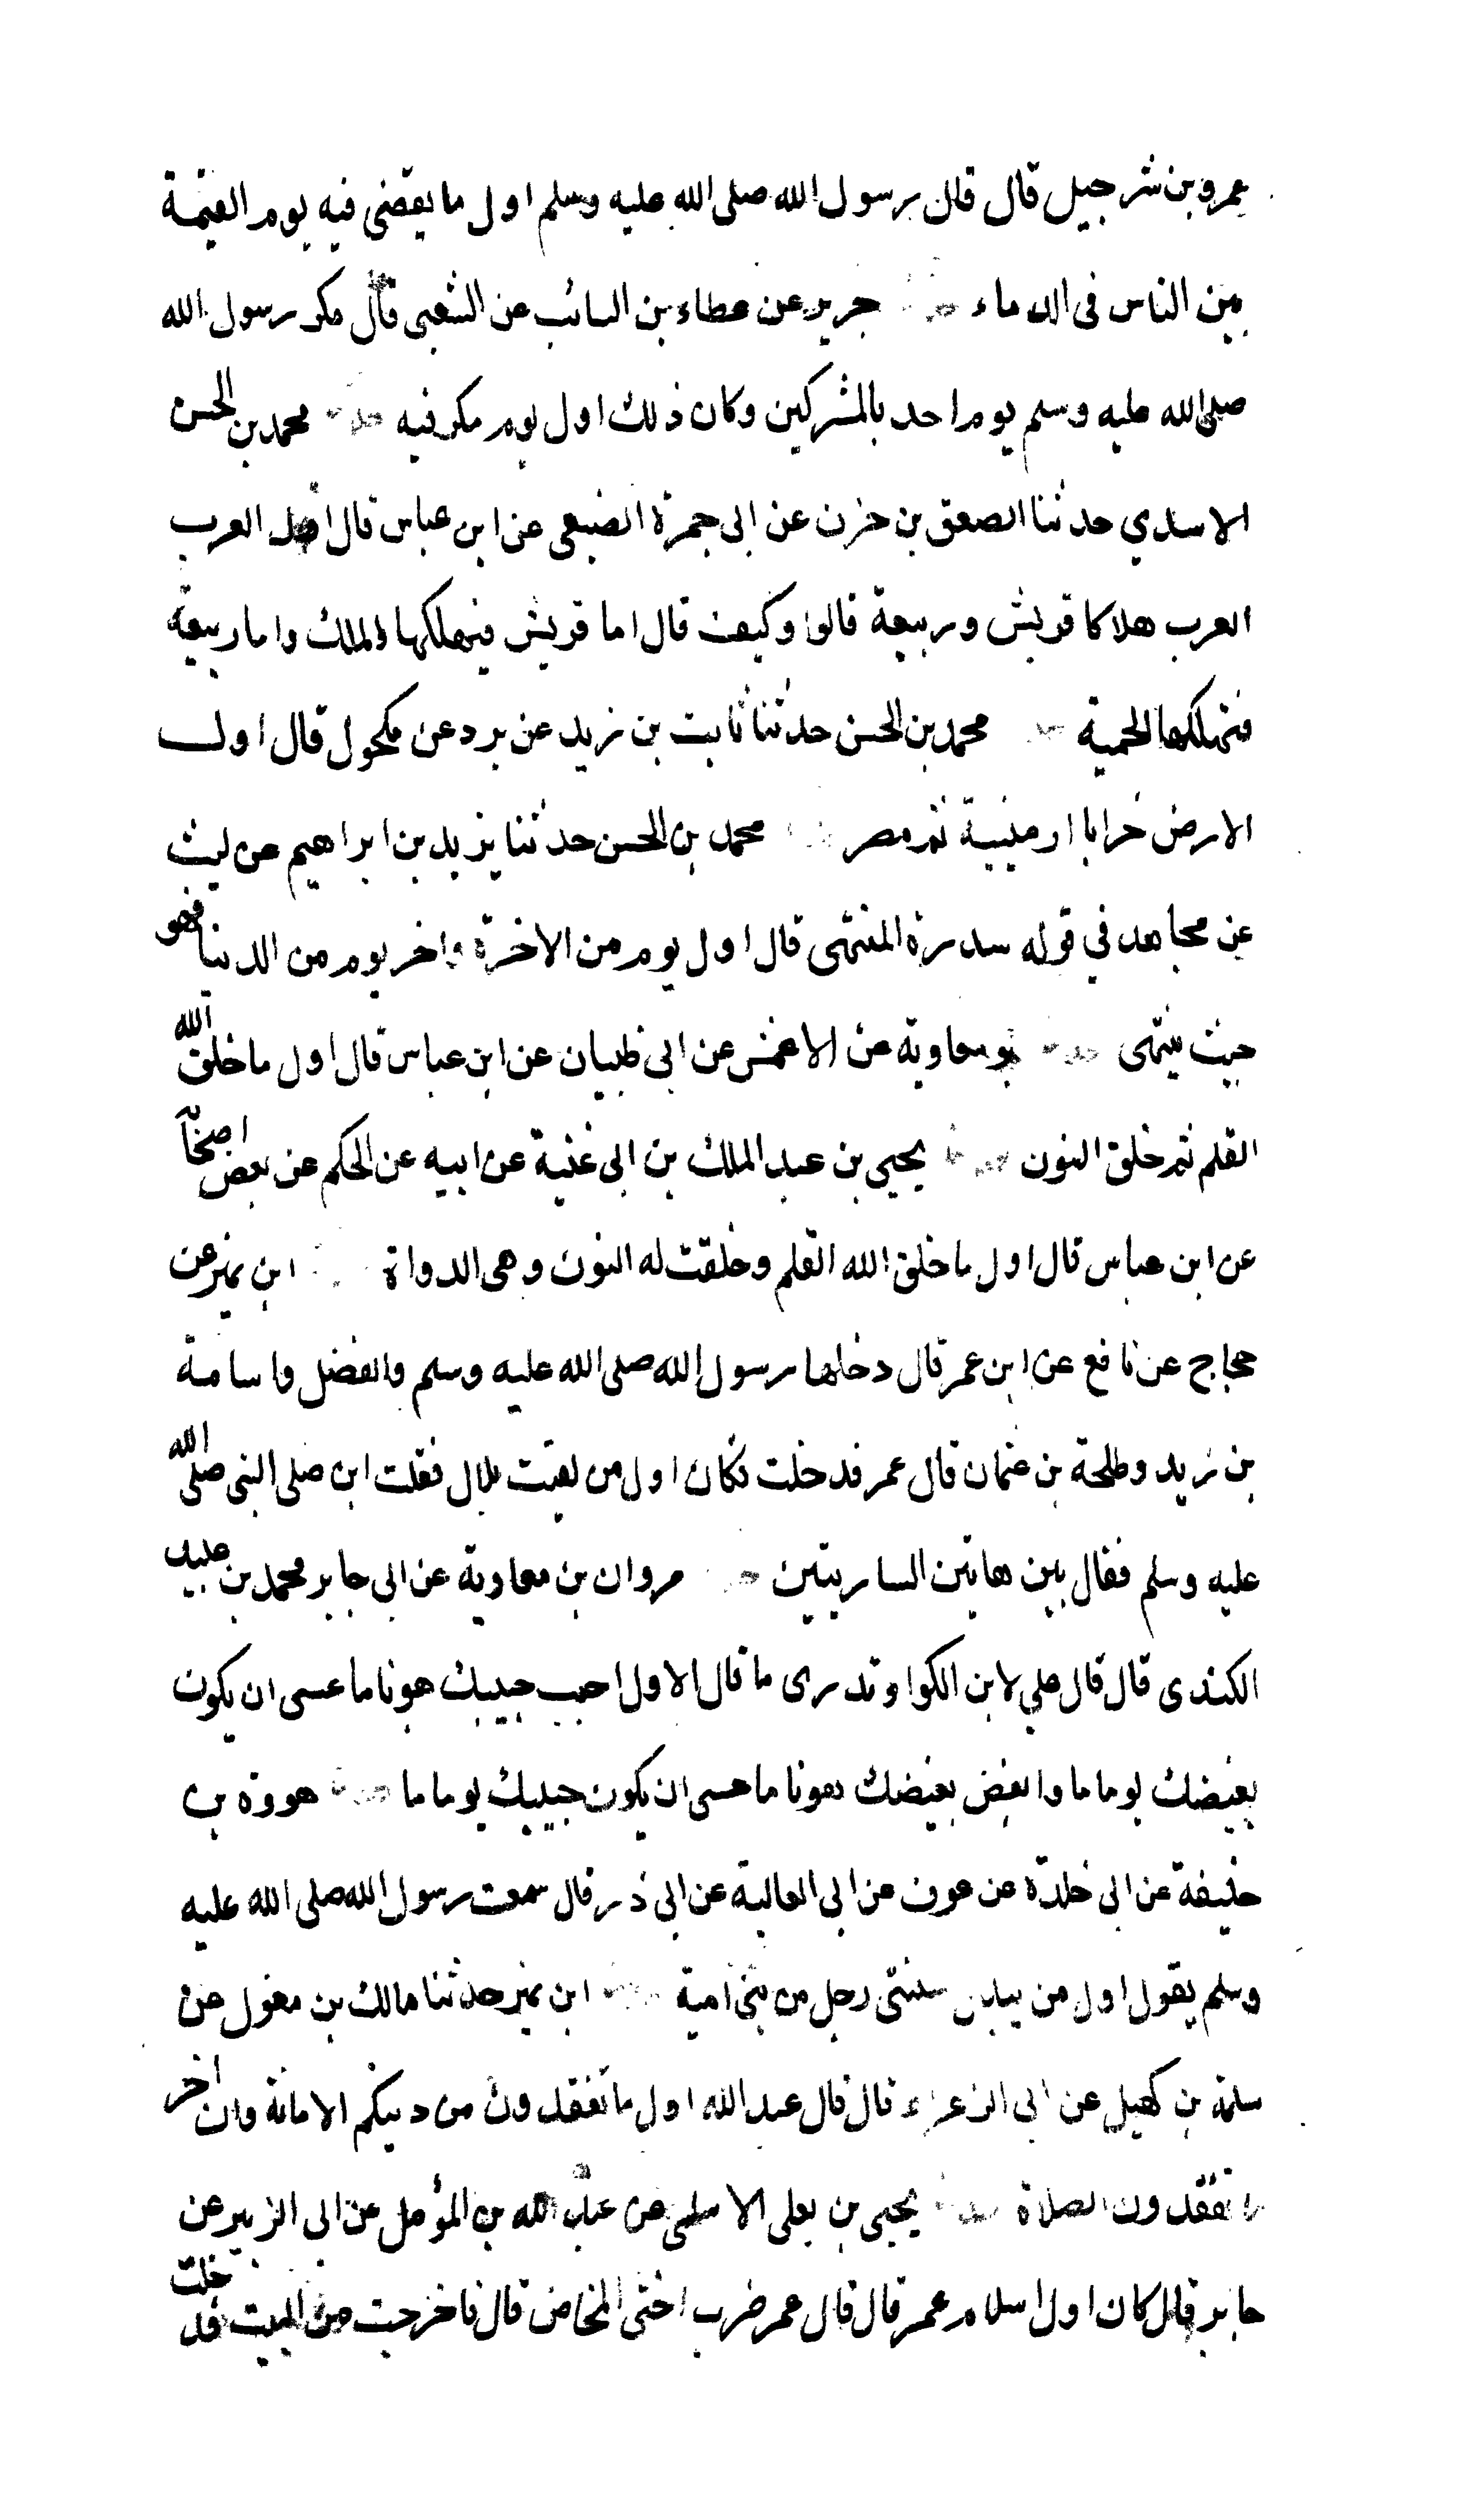 عمرو بن شرحبيل قال قال رسول الله صلى الله عليه وسلم اول ما يقضى فيه يوم القيمة
بين الناس فى الدماء حدثنا جرير عن عطاء بن السائب عن الشعبى قال مكر رسول الله
صلى الله عليه وسلم يوم احد بالمشركين وكان ذلك اول يوم مكر فيه حدثنا محمد بن الحسن
الاسدي حدثنا الصعق بن حزن عن ابى جمرة الضبعى عن ابن عباس قال اول العرب
العرب هلاكا قريش وربيعة قالوا وكيف قال اما قريش فيهلكها الملك واما ربيعة
فتهلكها الحمية محمد بن الحسن حدثنا ثابت بن زيد عن برد عن مكحول قال اول
الارض خرابا ارمينية ثم مصر محمد بن الحسن حدثنا يزيد بن ابراهيم عن ليث
عن مجاهد في قوله سدرة المنتهى قال اول يوم من الاخرة واخر يوم من الدنيا فهو
حيث ينتهى حدثنا ابو معاوية عن الاعمش عن ابى ظبيان عن ابن عباس قال اول ما خلق الله
القلم ثم خلق النون حدثنا يحيى بن عبد الملك بن ابى غنية عن ابيه عن الحكم عن بعض اصحابه
عن ابن عباس قال اول ما خلق الله القلم وخلقت له النون وهى الدواة ابن نمير عن
حجاج عن نافع عن ابن عمر قال دخلها رسول الله صلى الله عليه وسلم والفضل واسامة
بن زيد وطلحة بن عثمان قال عمر فدخلت فكان اول من لقيت بلال فقلت اين صلى النبى صلى الله
عليه وسلم فقال بين هاتين الساريتين مروان بن معاوية عن ابى جابر محمد بن عبيد
الكندى قال قال علي لابن الكوا وتدرى ما قال الاول احبب حبيبك هونا ما عسى ان يكون
بغيضك يوما ما وابغض بغيضك هونا ما عسى ان يكون حبيبك يوما ما حدثنا هوذة بن
خليفة عن ابى خلدة عن عوف عن ابى العالية عن ابى ذر قال سمعت رسول الله صلى الله عليه
وسلم يقول اول من يبدل سنتى رجل من بنى امية حدثنا ابن نمير حدثنا مالك بن مغول عن
سلمة بن كهيل عن ابى الزعراء قال قال عبد الله اول ما تفقدون من دينكم الامانة وان اخر
ما تفقدون الصلاة حدثنا يحيى بن يعلى الاسلمى عن عبد الله بن المؤمل عن ابى الزبير عن
جابر قال كان اول اسلام عمر قال قال عمر ضرب اختى المخاض قال فاخرجت من البيت فدخلت